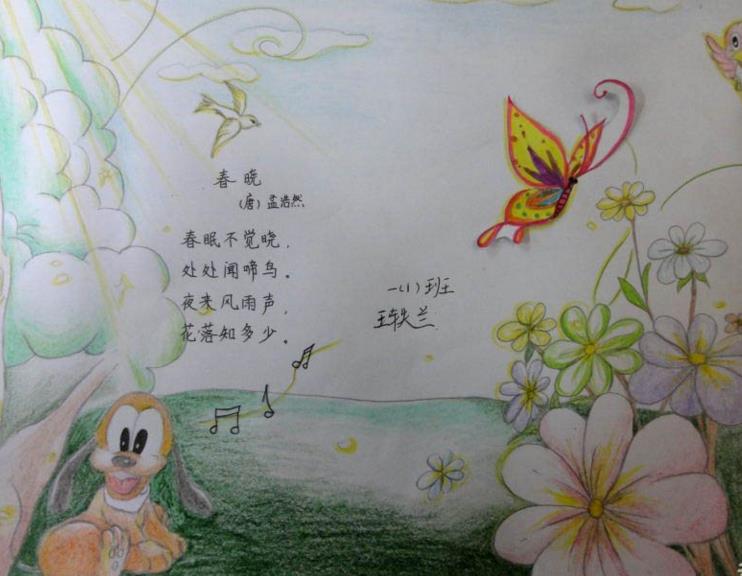 春晓
(唐)孟浩然
春眠不觉晓,
处处闻啼鸟。
夜来风雨声,
花落知多少。
一(1)班
王轶兰